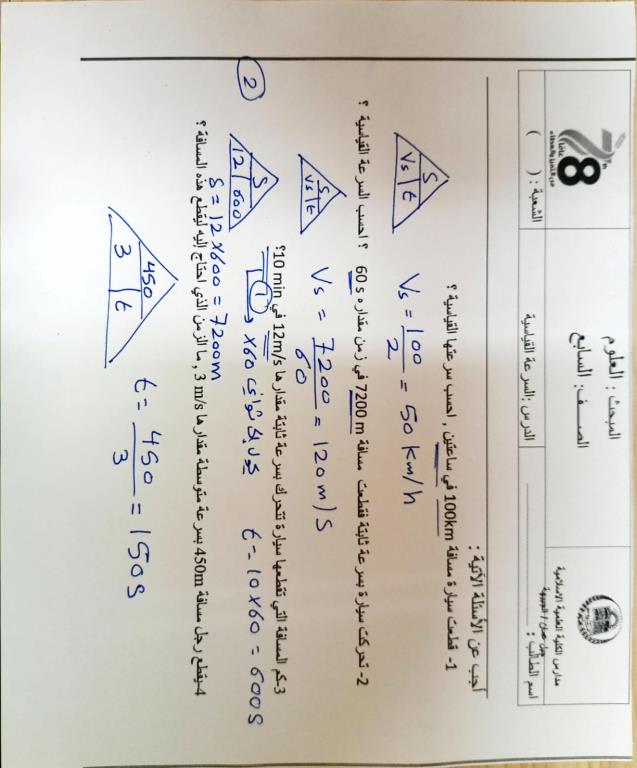 مدارس الكلية العلمية الاسلامية
جبل عمان / الجبيهة
اسم الطالب :
المبحث : العلوم
الصف: السابع
الدرس :السرعة القياسية
78
عاماً
من التميز والعطاء
الشعبة : ( )
أجب عن الأسئلة الآتية :
1- قطعت سيارة مسافة 100km في ساعتين , احسب سرعتها القياسية ؟
S
Vs t
Vs = 100/2 = 50 km/h
2- تحركت سيارة بسرعة ثابتة فقطعت مسافة 7200 m في زمن مقداره 60 s ؟ احسب السرعة القياسية ؟
S
Vs t
Vs = 7200/60 = 120 m/s
3-كم المسافة التي تقطعها سيارة تتحرك بسرعة ثابتة مقدارها 12m/s في 10 min؟
① حول لثواني 60x t = 10x60 = 600s
②
S
12 600
S = 12x600 = 7200m
4-يقطع رجل مسافة 450m بسرعة متوسطة مقدارها 3 m/s , ما الزمن الذي احتاج إليه ليقطع هذه المسافة ؟
450
3 t
t = 450/3 = 150s